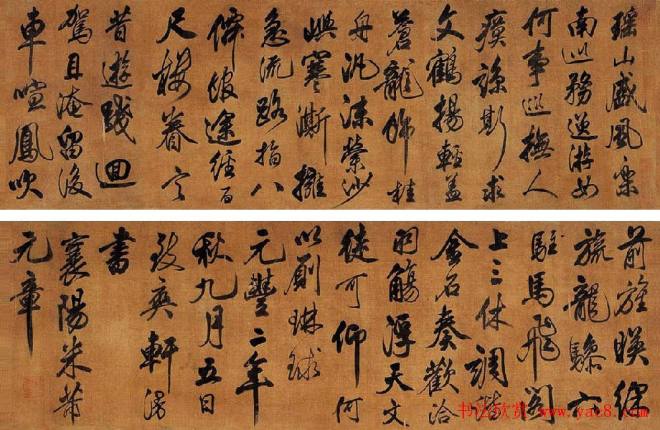 瑶山盛風樂
南巡務逸游如
何事巡撫人
瘼諒斯求
文鶴揚輕蓋
蒼龍飾桂
舟汎沫縈沙
嶼寒澌擁
急流路指八
僊館途經百
尺樓眷言
昔遊踐迴
駕且淹留後
車喧鳳吹
前旌映綵
旒龍驂六
駐馬飛閣
上三休調諧
金石奏歡洽
羽觴浮天文
徒可仰何
以廁琳球
元豐二年
秋九月五日
致爽軒漫
書
襄陽米芾
元章
书法欣赏 www.yac8.com